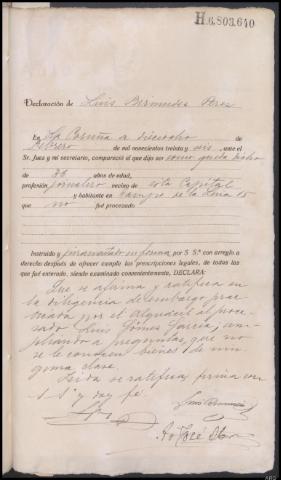 H.6.803.640
Declaración de Luis Bermudez Perez
En La Coruña a dieciocho de
Febrero de mil novecientos treinta y seis, ante el
Sr. Juez y mi secretario, compareció el que dijo ser como queda dicho
de 36 años de edad,
profesión jornalero vecino de esta Capital
y habitante en Campo de la Leña 15
que no fué procesado
Instruído y juramentado en forma, por S Sª con arreglo a
derecho después de ofrecer cumplir las prescripciones legales, de todas las
que fué enterado, siendo examinado convenientemente, DECLARA:
Que se afirma y ratifica en
la diligencia de embargo prac
ticada por el Alguacil al proce-
sado Luis Gómez García, am-
pliando a preguntas que no
se le conocen bienes de nin-
guna clase.
Leida se ratifica, firma con
S Sª y doy fé.
Luis Bermudez
José